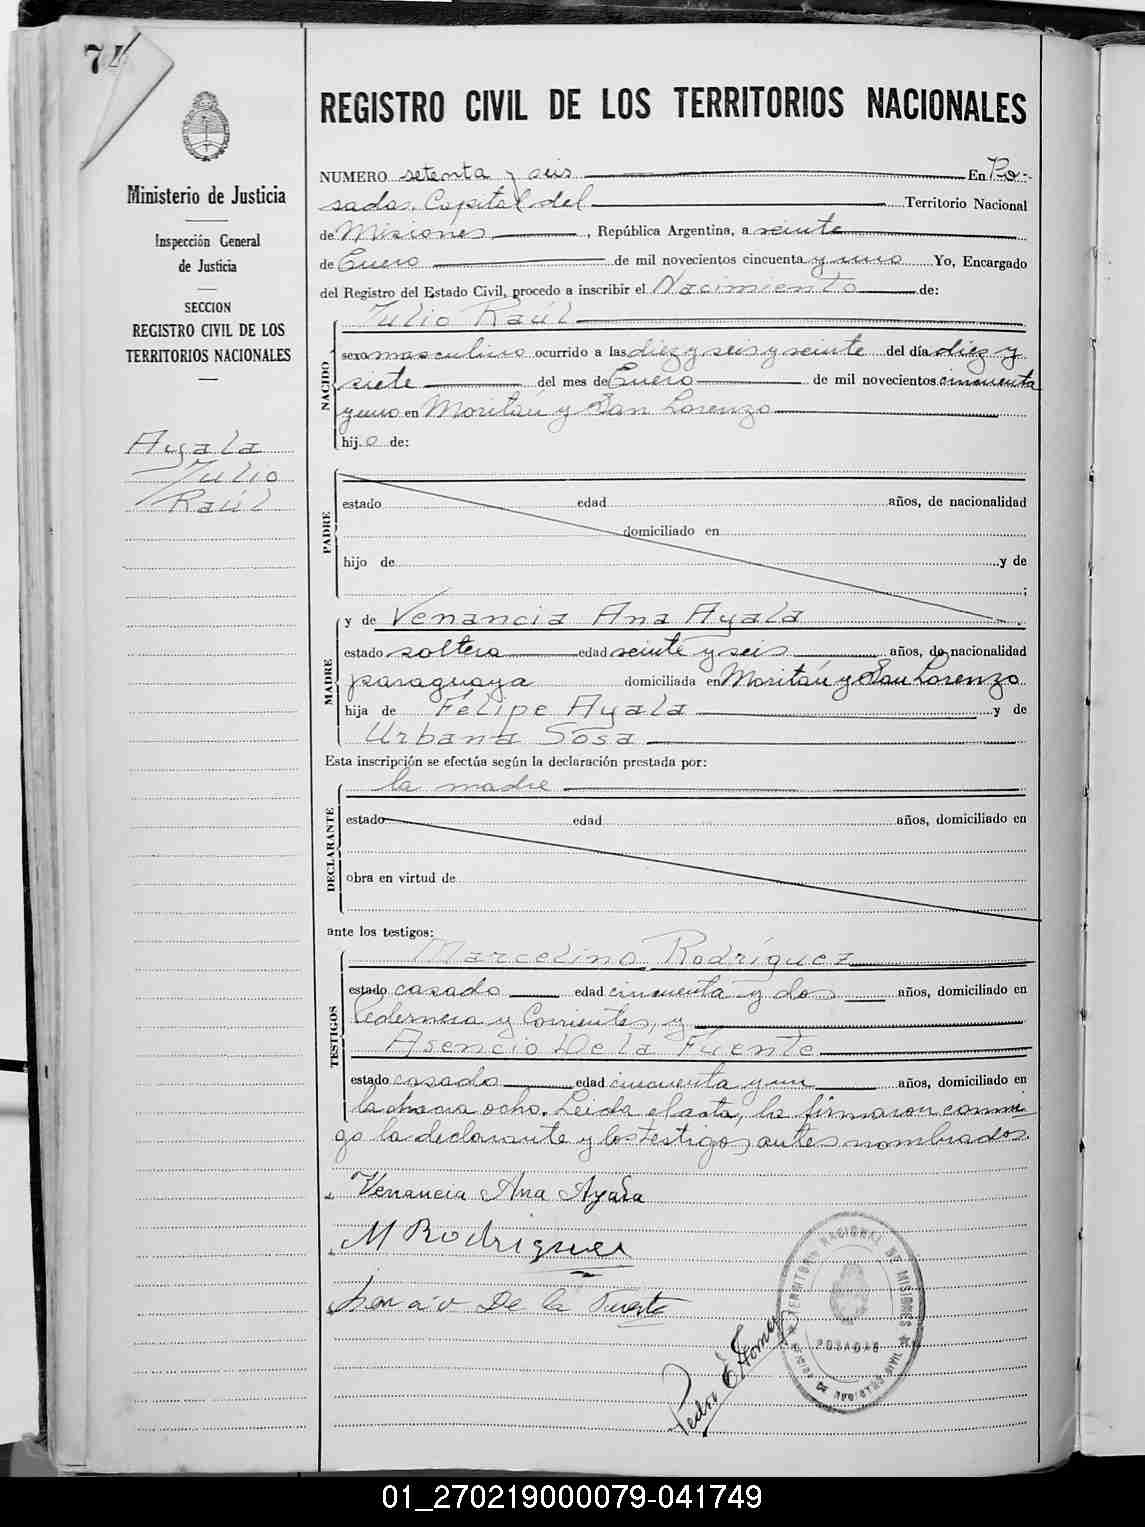 74
Ministerio de Justicia
Inspección General
de Justicia
SECCION
REGISTRO CIVIL DE LOS
TERRITORIOS NACIONALES
Ayala
Julio
Raúl
REGISTRO CIVIL DE LOS TERRITORIOS NACIONALES
NUMERO setenta y seis En Po-
sadas, Capital del Territorio Nacional
de Misiones, República Argentina, a veinte
de Enero de mil novecientos cincuenta y uno Yo, Encargado
del Registro del Estado Civil, procedo a inscribir el Nacimiento de:
NACIDO
Julio Raúl
sexo masculino ocurrido a las diez y seis y veinte del día diez y
siete del mes de Enero de mil novecientos cincuenta
y uno en Moritán y San Lorenzo
hijo de:
PADRE
estado edad años, de nacionalidad
domiciliado en
hijo de y de
;
MADRE
y de Venancia Ana Ayala
estado soltera edad veinte y seis años, de nacionalidad
paraguaya domiciliada en Moritán y San Lorenzo
hija de Felipe Ayala y de
Urbana Sosa
Esta inscripción se efectúa según la declaración prestada por:
DECLARANTE
la madre
estado edad años, domiciliado en
obra en virtud de
ante los testigos:
TESTIGOS
Marcelino Rodríguez
estado casado edad cincuenta y dos años, domiciliado en
Pedernera y Corrientes, y
Asencio De la Fuente
estado casado edad cincuenta y un años, domiciliado en
la chacra ocho. Leida el acta, la firmaron conmi-
go la declarante y los testigos antes nombrados.
Venancia Ana Ayala
M Rodriguez
De la Fuente
Pedro E
TERRITORIO NACIONAL DE MISIONES
POSADAS
01_270219000079-041749